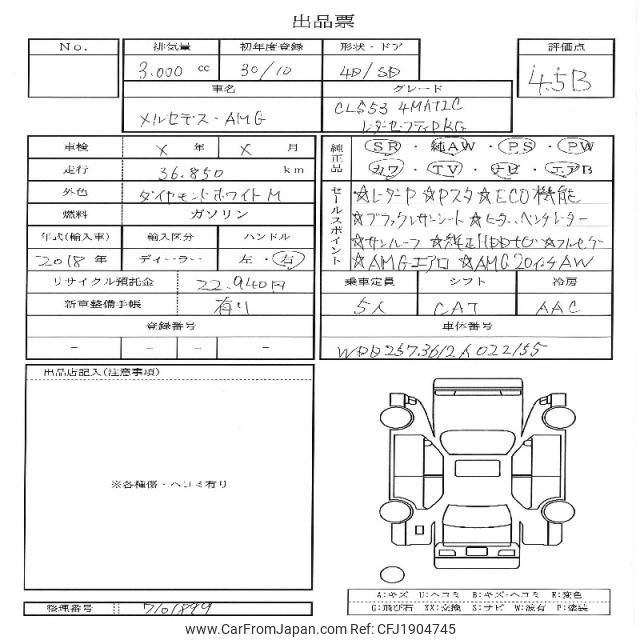 出品票
No. 排気量 初年度登録 形状・ドア 評価点
3.000 cc 30/10 4D/SD 4.5B
車名 グレード
メルセデス・AMG CLS53 4MATIC
レーダーセーフティPKG
車検 X 年 X 月
走行 36.850 km
外色 ダイヤモンドホワイトM
燃料 ガソリン
年式(輸入車) 輸入区分 ハンドル
2018年 ディーラー 左・右
リサイクル預託金 22.940円
新車整備手帳 有り
登録番号
- - - -
純正品 SR・純AW・PS・PW
カワ・TV・ナビ・エアB
セールスポイント ☆レーダーP ☆Pスタ ☆ECO機能
☆ブラックレザーシート ☆ヒーター、ベンチレーター
☆サンルーフ ☆純正HDDナビ ☆フルセグ
☆AMGエアロ ☆AMG20インチAW
乗車定員 シフト 冷房
5人 CAT AAC
車体番号
WDD2573612A022155
出品店記入(注意事項)
※各種傷・ヘコミ有り
整理番号 7101899
A:キズ U:ヘコミ B:キズ・ヘコミ E:変色
G:飛び石 XX:交換 S:サビ W:波有 P:塗装
www.CarFromJapan.com - CFJ1904745